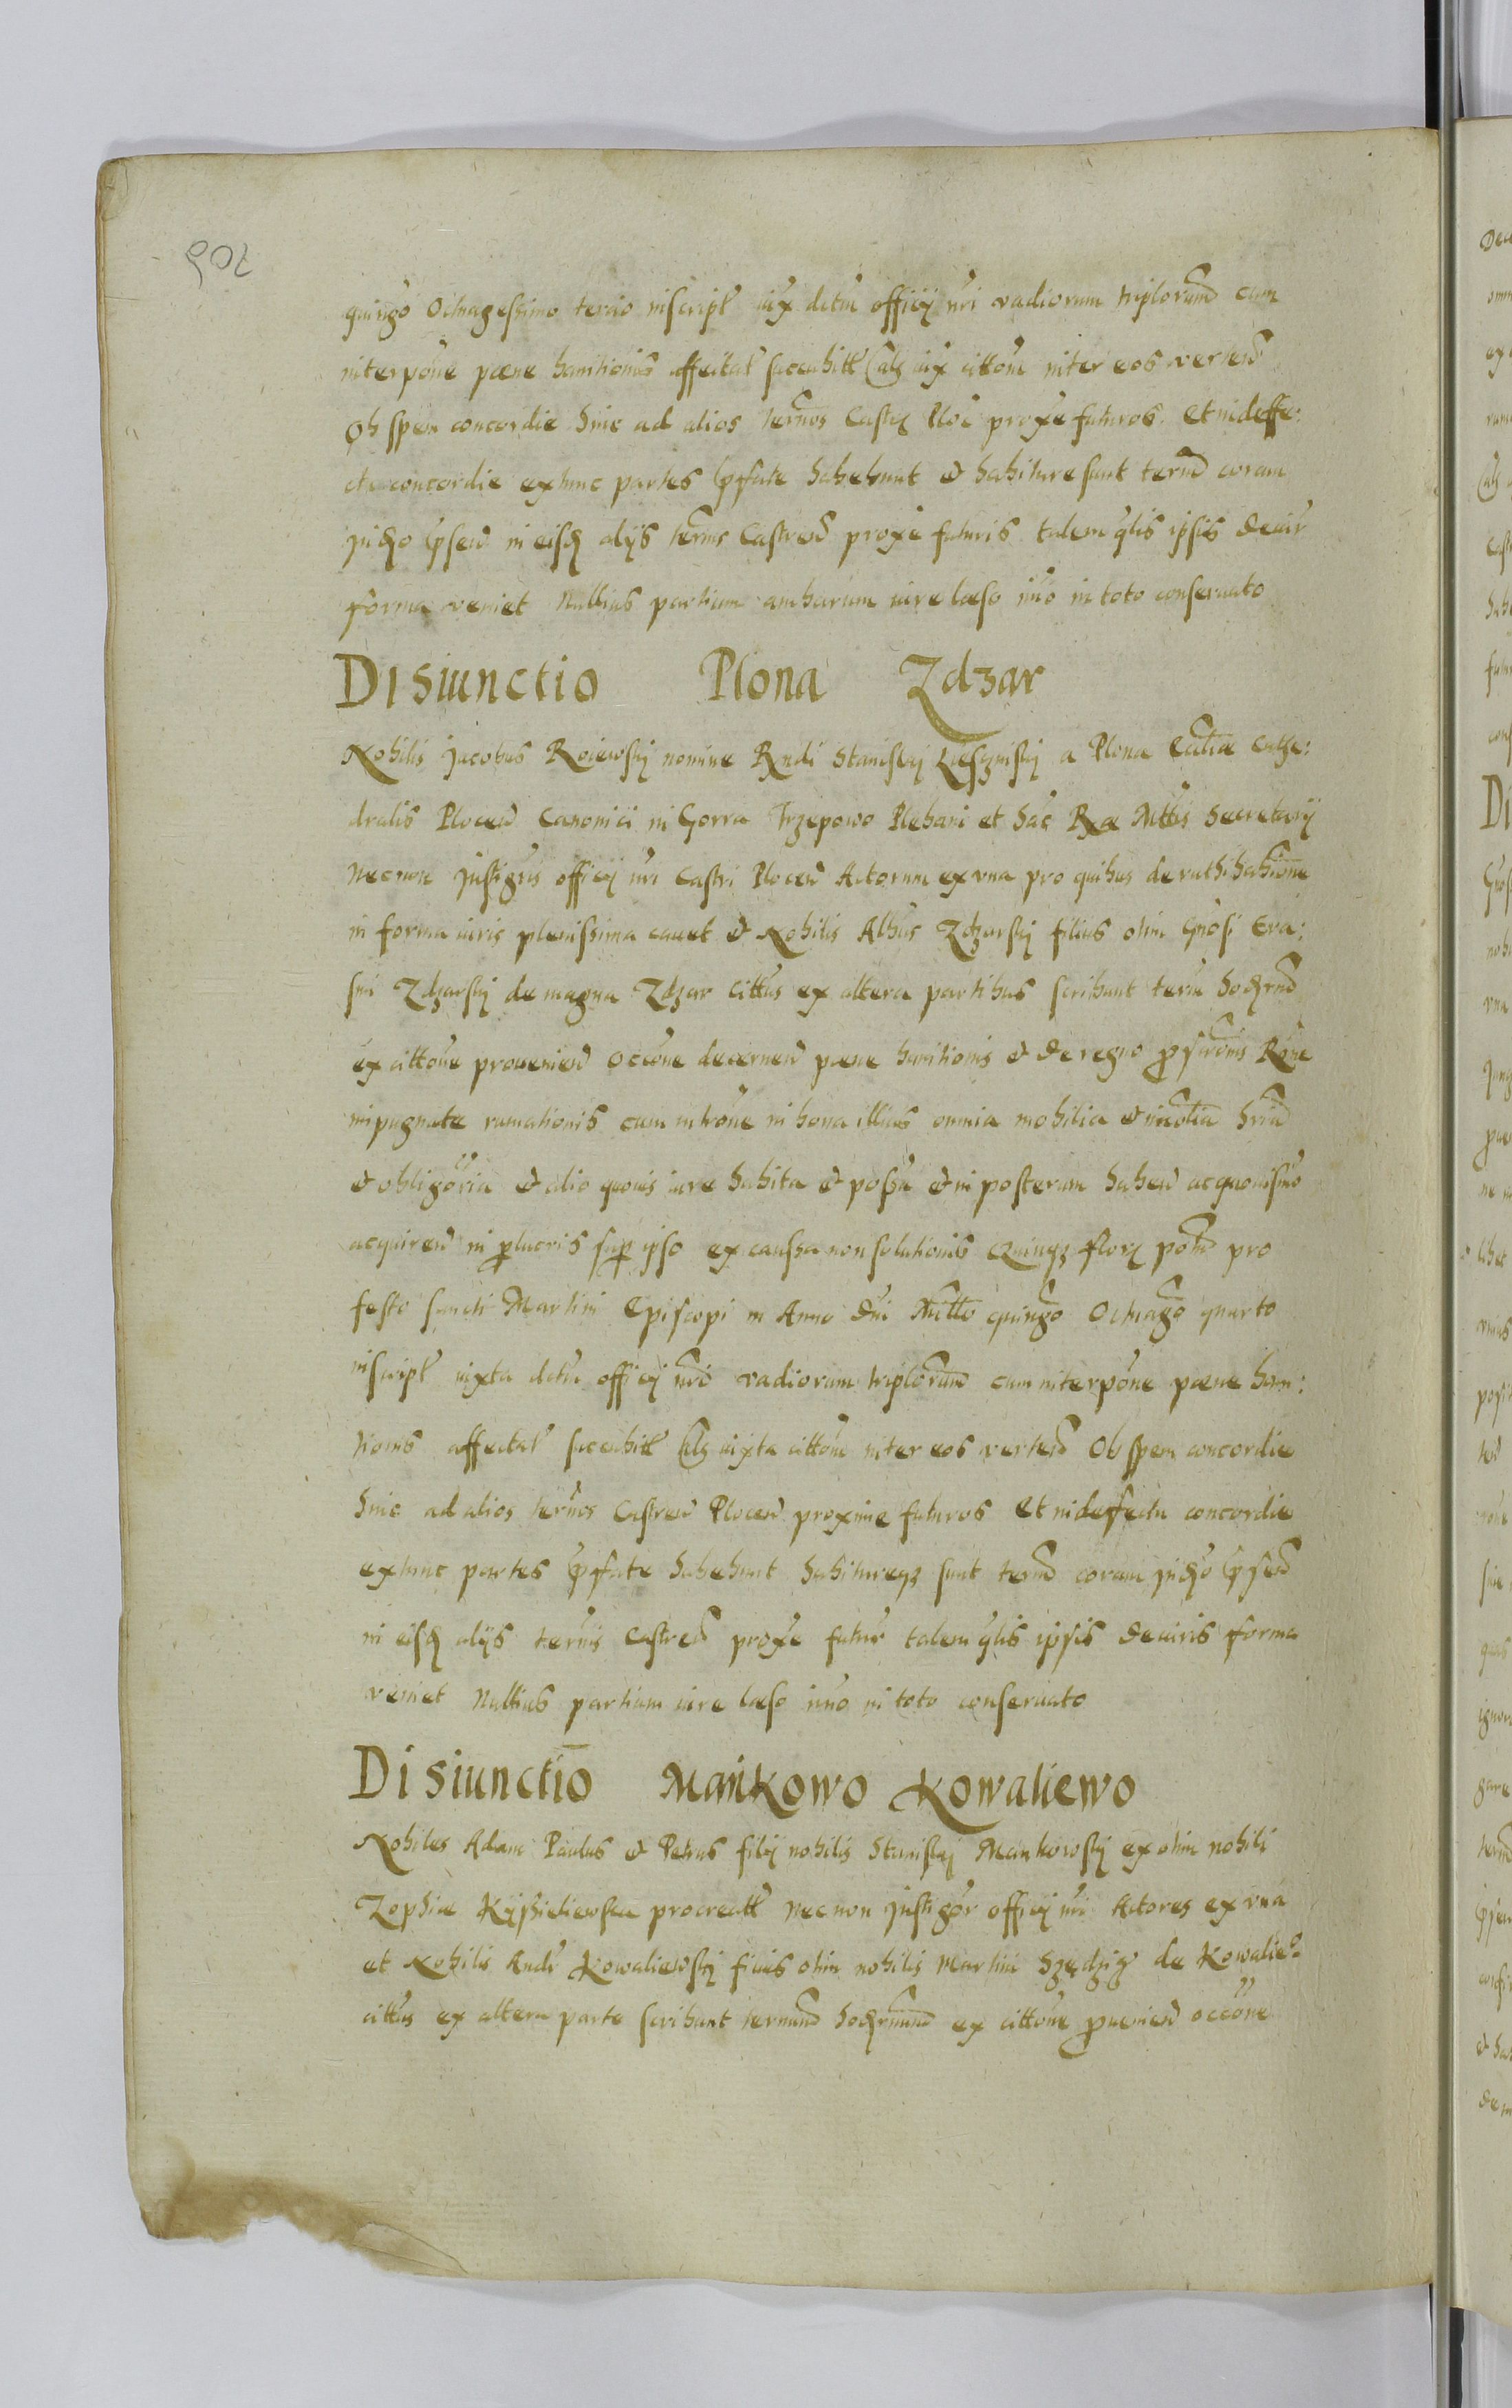 902
quingo Octuagessimo tercio inscript iux dctm officij nri vadiorum triplorumd cum
interpone pæne banitionis affectat succubitt als iux cittom inter eos vertend
Ob spem concordie hinc ad alios termos Castr Ploc proxe futuros. Et in deffe:
ctu concordie extunc partes pfate habebunt et habiture sunt termd coram
judo psend in eisd alijs termis Castrend proxe futuris talem qlis ipsis de iur
forma veniet Nullius partium ambarum iure læso imo in toto conseruato
Disiunctio Plona Zdzar
Nobilis Jacobus Roiewskj nomine Rndi Stanislaj a Plona Eccliæ Cathe:
dralis Plocen Canonici in Gorra Trzepowo Plebani et Sac Ræ Mttis Secretarij
Necnon Justigris officij nri Castri Plocen Actorum ex vna pro quibus de rathihabitione
in forma iuris plenissima cauet et Nobilis Albus Zdzarskj filius olim Gnosi Era:
smi Zdzarskj de magna Zdzar cittus ex altera partibus scribunt term hodrnd
ex cittone provenien occone decernen pæne banitionis et de regno pscronis Rone
inpugnate rumationis cum introne in bona illius omnia mobilia et inmobilia hria
et obligoria et alio quouis iure habita et possa et in posterum haben ac quouismo
acquiren in plucris sup ipso ex caussa non solutionis Quinqz flor pol pro
festo sancti Martini Episcopi in Anno Dni Millo quingo Octuago quarto
inscript iuxta dctm officij nri vadiorum triplorumd cum interpone pæne bani:
tionis affectat succubitt als iuxta cittom inter eos vertend Ob spem concordie
hinc ad alios termos Castren Plocen proxime futuros Et in deffectu concordie
extunc partes pfate habebunt habitureqz sunt termd coram judo psend
in eisd alijs termis Castrend proxe futur talem qlis ipsis de iuris forma
veniet Nullius partium iure læso imo in toto conseruato
Disiunctio Mańkowo Kowaliewo
Nobiles Adam Paulus et Petrus filij nobilis Stanislaj Mankowskj ex olim nobili
Zophia procreatt Necnon Justigor officij nri Actores ex vna
et Nobilis Andr Kowaliewskj filius olim nobilis Martini de Kowalie:
cittus ex altera parte scribunt termind hodrnumd ex cittone puenien occone